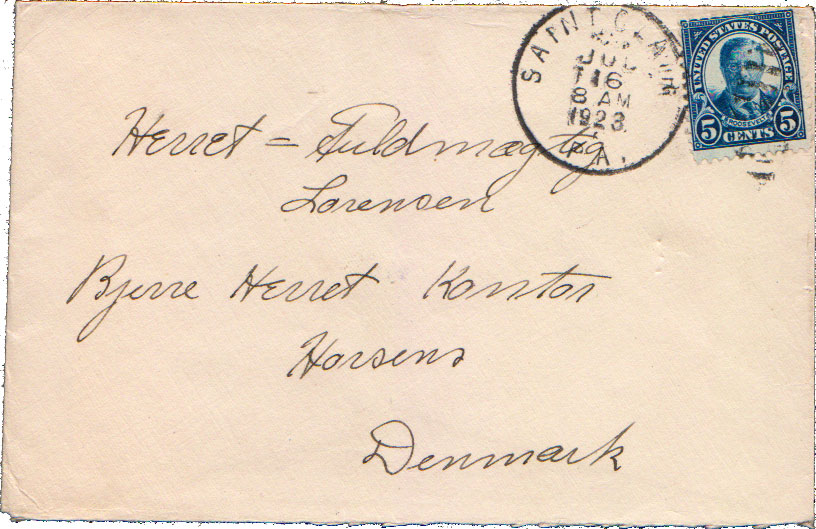 SAINT CLAIR
JUL
16
8 AM
1923
PA.
UNITED STATES POSTAGE
ROOSEVELT
5 CENTS 5
Herret = Fuldmægtig
Lorensen
Bjerre Herret Kontor
Horsens
Denmark